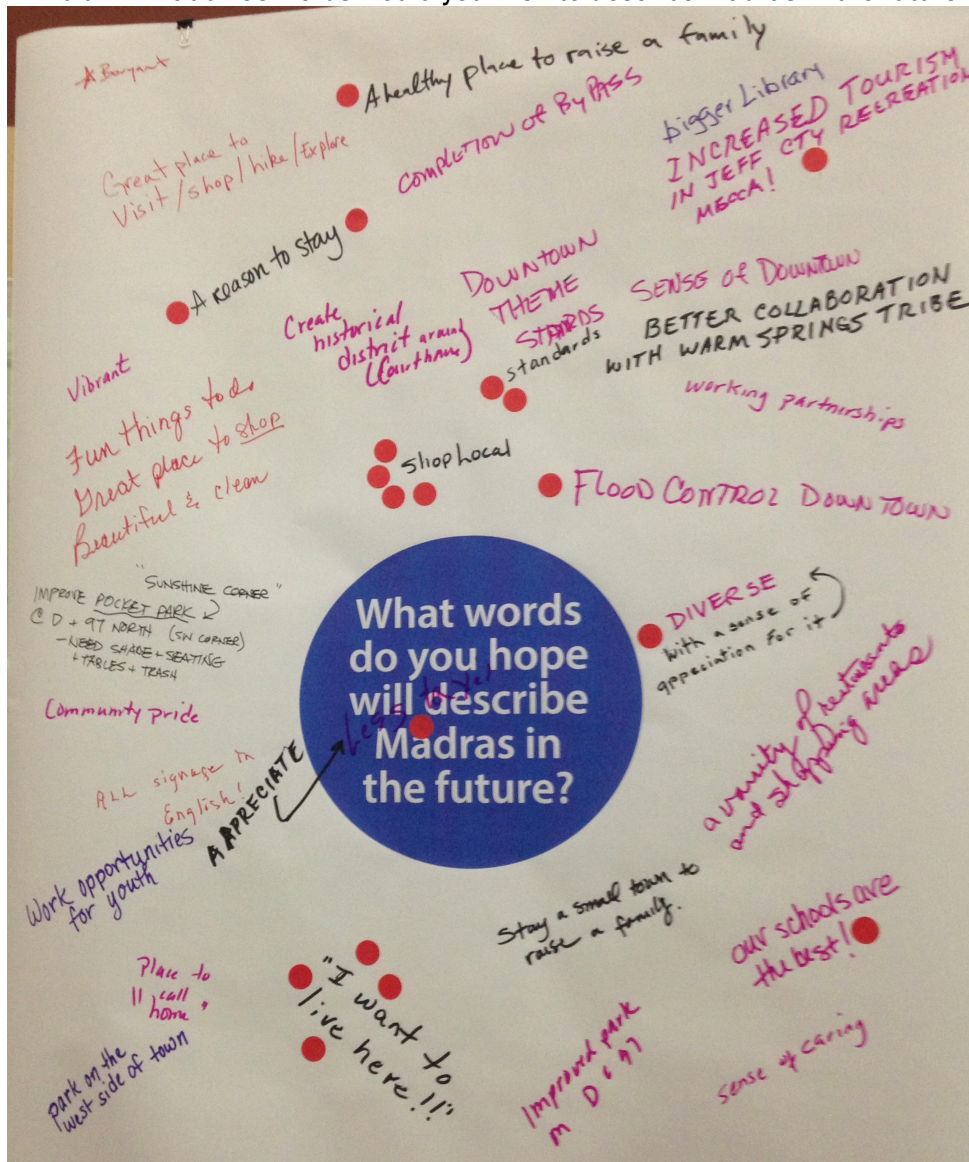 A healthy place to raise a family
Great place to
Visit/shop/hike/Explore
COMPLETION of ByPASS
bigger Library
INCREASED TOURISM
IN JEFF CTY RECREATION
MECCA!
A reason to stay
Create
historical
district around
(Courthouse)
DOWNTOWN
THEME
standards
SENSE of DOWNTOWN
BETTER COLLABORATION
WITH WARM SPRINGS TRIBE
working partnerships
Vibrant
Fun things to do
Great place to shop
Beautiful & clean
Shop Local
FLOOD CONTROL DOWNTOWN
"SUNSHINE CORNER"
IMPROVE POCKET PARK
@ D + 97 NORTH (SW CORNER)
-NEED SHADE + SEATING
+ TABLES + TRASH
What words
do you hope
will describe
Madras in
the future?
Less
DIVERSE
with a sense of
appeciation for it
Community pride
ALL signage in
English!
APRECIATE
a variety of restaurants
and shopping areas
Work opportunities
for youth
Stay a small town to
raise a family.
our schools are
the best!
Place to
"call
home"
"I want to
live here!!"
park on the
west side of town
Improved park
D & 97
sense of caring